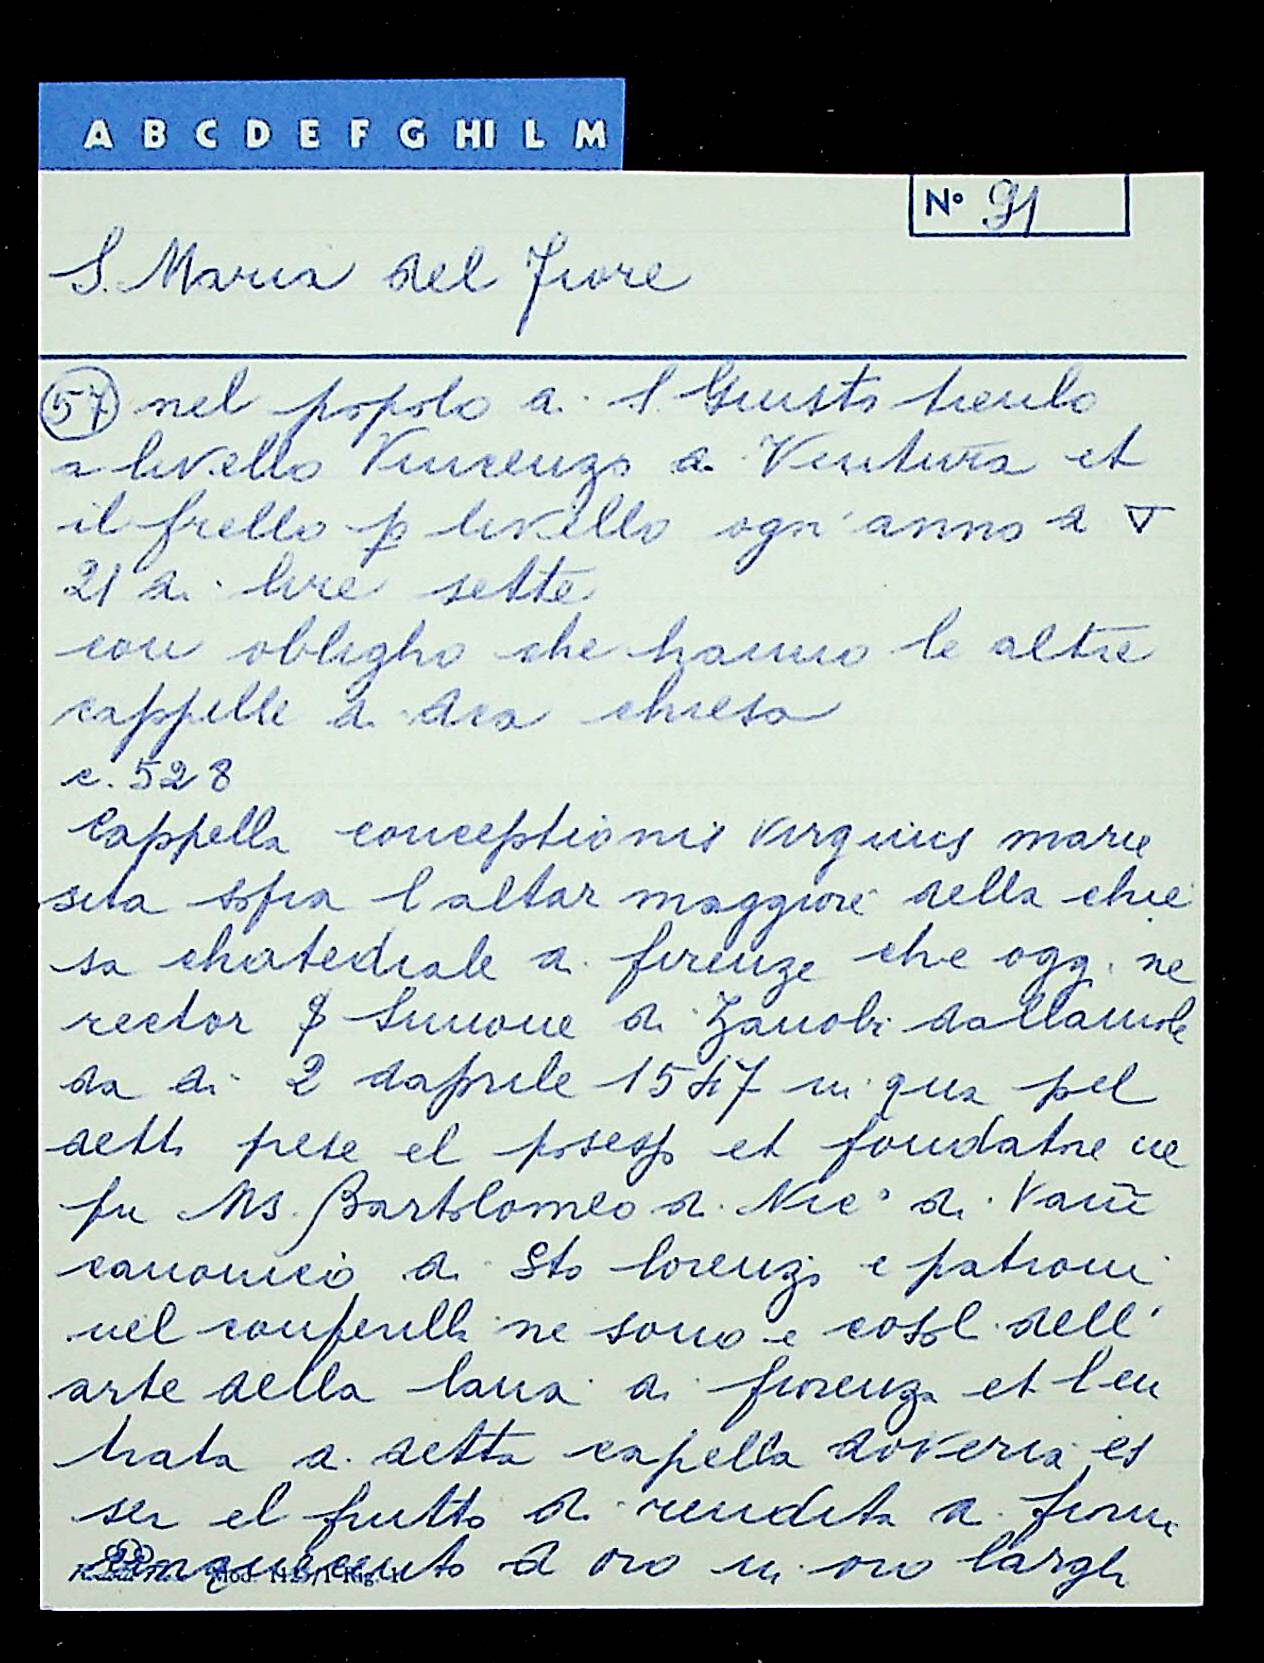 A B C D E F G HI L M
N° 91
S. Maria del Fiore
57 nel popolo di S. Giusto tienlo
a livello Vincenzo di Ventura et
il frello p livello ogn'anno a ∇
21 di lire sette
con obligho che hanno le altre
cappelle di dca chiesa
c. 528
Cappella conceptionis Virginis marie
sita sopra l altar maggiore della chie
sa chatedrale di firenze che ogg. ne
rector Simone di Zanobi
da di 2 daprile 1547 in qua pel
detto prese el posesso et fondatore ne
fu Ms. Bartolomeo di Nic° di Vanĩ
canonico di Sto lorenzo e patroni
nel conferilla ne sono e cosol. dell'
arte della lana di fiorenza et l en
trata di detta capella doveria es
ser el frutto di rendita di fiorini
cinquecento d oro in oro larghi